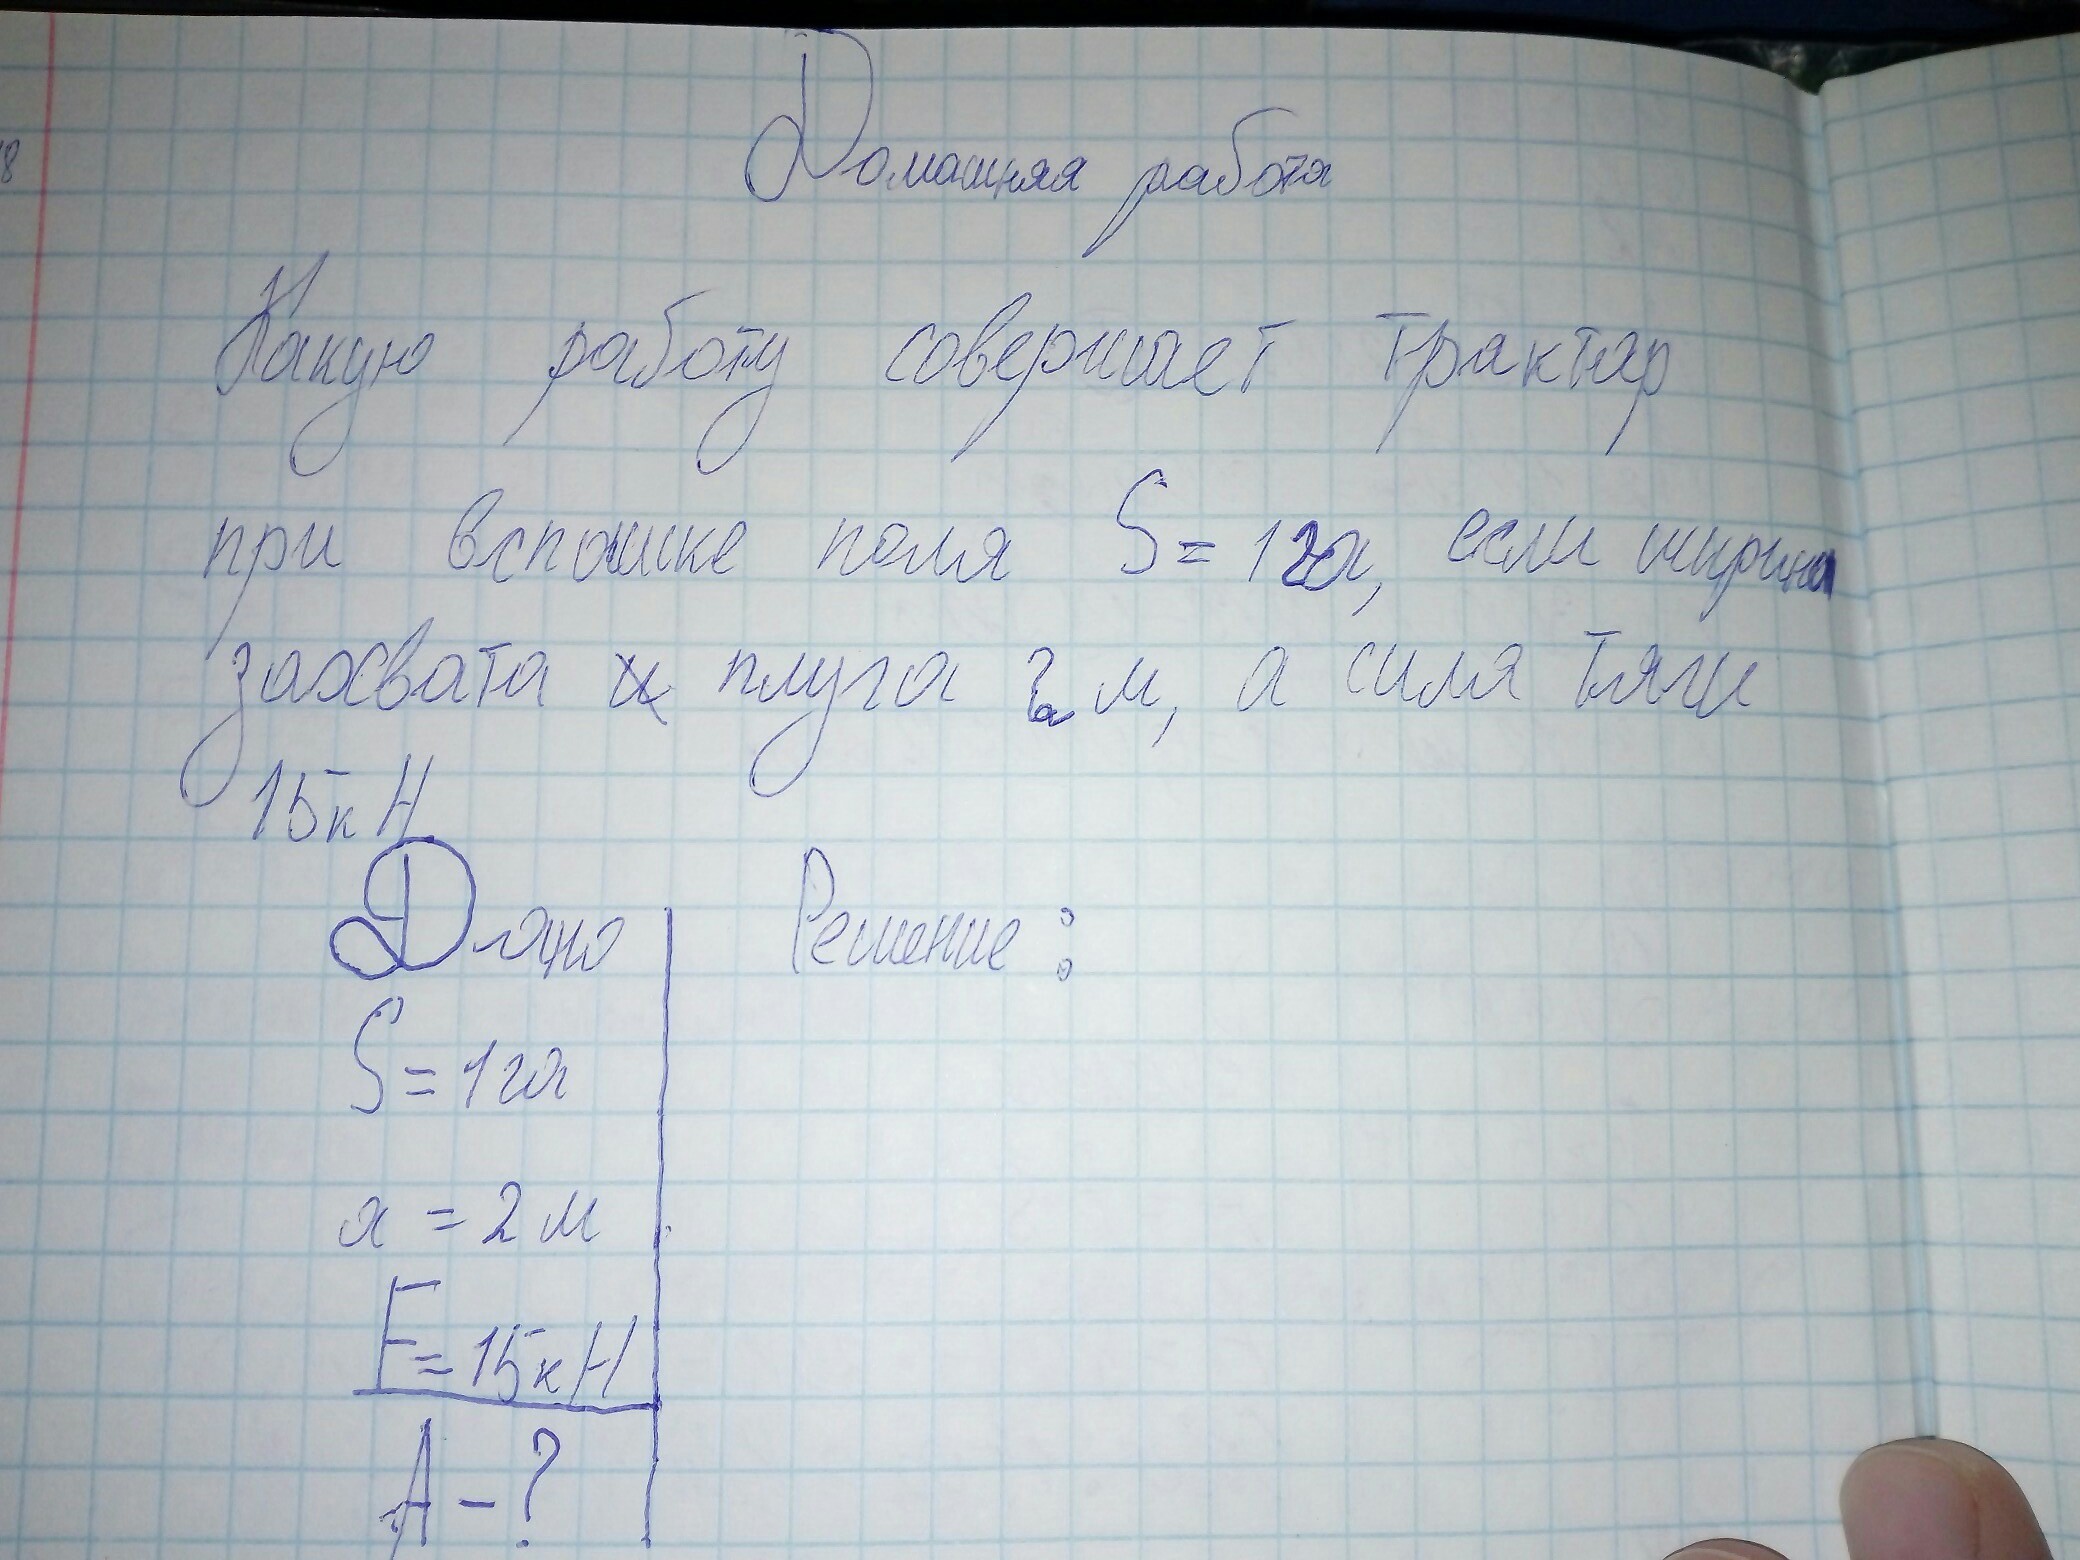 Домашняя работа
Какую работу совершает трактар
при вспашке поля S = 1 га, если ширина
захвата плуга 2 м, а сила тяги
15 кН
Дано Решение :
S = 1 га
a = 2 м
F = 15 кН
A - ?